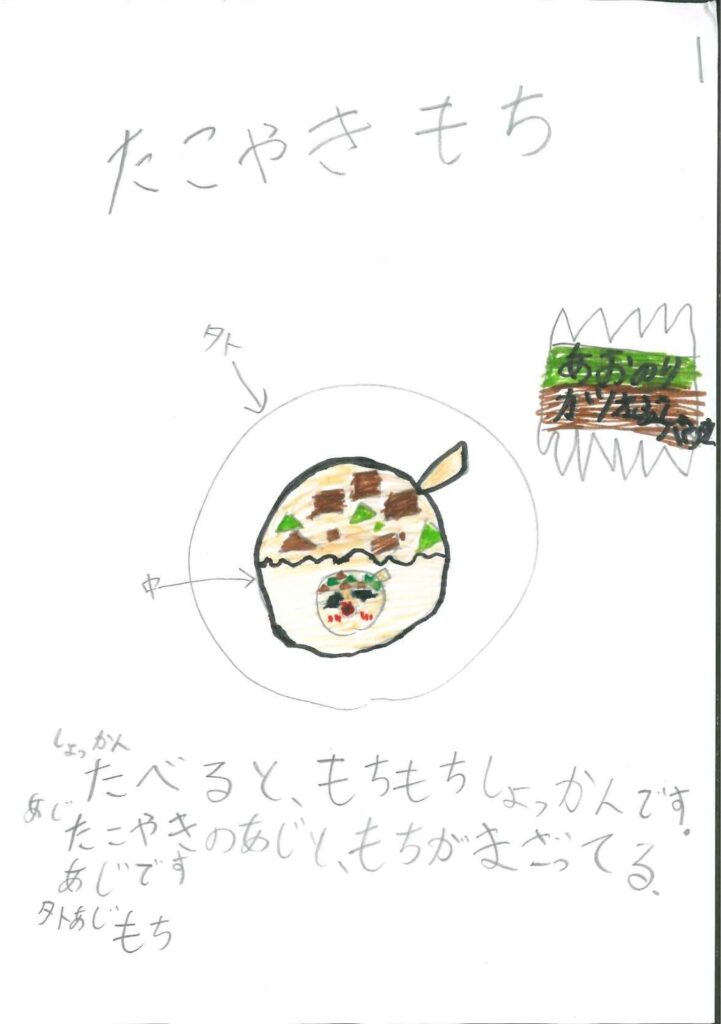 1
たこやきもち
外
あおのり
かつおぶし
中
しょっかん
たべると、もちもちしょっかんです。
あじ
たこやきのあじと、もちがまざってる、
あじです
外あじ もち